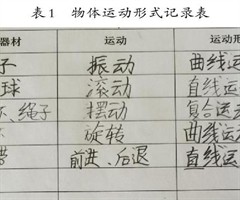 表1 物体运动形式记录表
器材 运动 运动形
子 振动 曲线运
球 滚动 直线运
绳子 摆动 复合运
旋转 曲线运
带 前进、后退 直线运